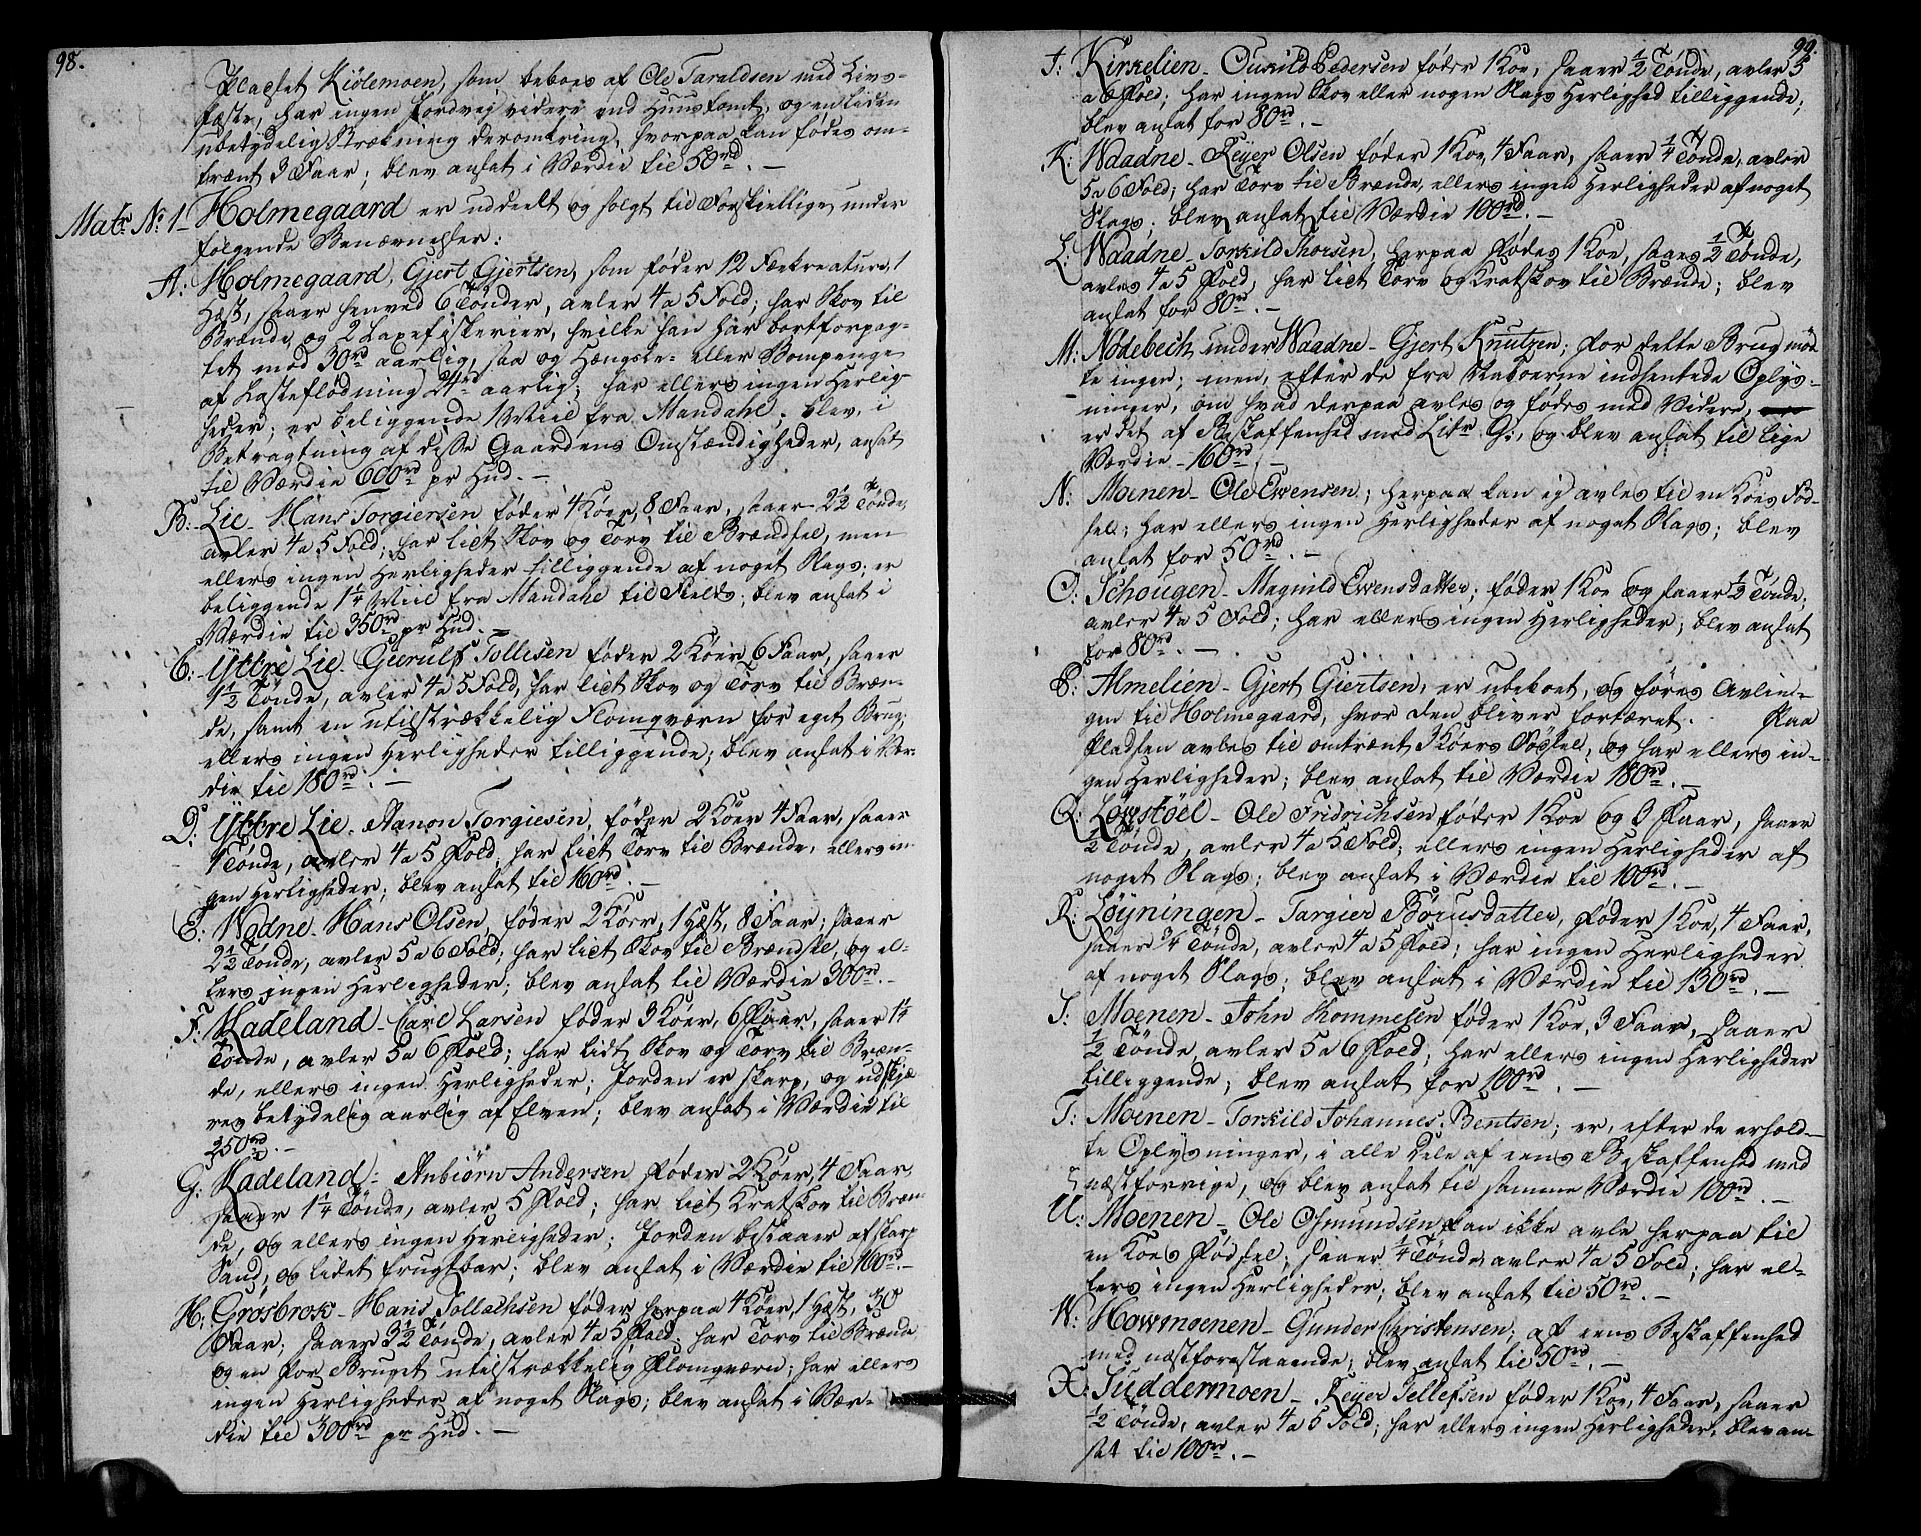 98.
Pladset Kiølemoen, som beboes af Ole Taraldsen med Livs-
fæste, har ingen Jordvej videre end Huustomt, og en liden
ubetydelig Strækning deromkring, hvorpaa kan fødes om-
trent 3 Faar; blev ansat i Værdie til 50rd. –
Matr. No. 1 – Holmegaard er uddeelt og solgt til Forskiellige, under
følgende Benævnelser:
A: Holmegaard, Gjert Gjertsen, som føder 12 Fækreature, 1
Hest, saaer henved 6 Tønder, avler 4 a 5 Fold; har Skov til
Brænde, og 2 Laxefiskerier, hvilke han har bortforpag-
tet med 30rd aarlig, saa og Hængsle- eller Bompenge
af Lasteflødning 24rd aarlig; har ellers ingen Herlig-
heder; er beliggende 1 Miil fra Mandahl; blev, i
Betragtning af disse Gaardens Omstændigheder, ansat
til Værdie 600rd pr Hud. –
B: Lie – Hans Torgiersen føder 4 Køer, 8 Faar, saaer 2½ Tønde,
avler 4 a 5 Fold; har lidt Skov og Torv til Brændsel, men
ellers ingen Herligheder tilliggende af noget Slags; er
beliggende 1¼ Miil fra Mandahl til Fields; blev ansat i
Værdie til 350rd pr Hud. –
C: Yttre Lie – Gierulf Tollisen føder 2 Køer, 6 Faar, saaer
1½ Tønde, avler 4 a 5 Fold, har lidt Skov og Torv til Bræn-
de, samt en utilstrækkelig Flomqværn for eget Brug;
ellers ingen Herligheder tilliggende; blev ansat i Vær-
die til 180rd. –
D: Yttre Lie – Aanon Torgiesen, føder 2 Køer 4 Faar, saaer
1 Tønde, avler 4 a 5 Fold, har lidt Torv til Brænde, ellers in-
gen Herligheder; blev ansat til 160rd. –
E: Wodne – Hans Olsen, føder 2 Køer, 1 Hest, 8 Faar; saaer
2½ Tønde, avler 5 a 6 Fold; har lidt Skov til Brændsel, og el-
lers ingen Herligheder; blev ansat til Værdie 300rd. –
F: Madeland – Carl Larsen føder 3 Køer, 6 Faar, saaer 1¼
Tønde, avler 5 a 6 Fold; har lidt Skov og Torv til Bræn-
de, ellers ingen Herligheder; Jorden er skarp, og udskjæ-
res betydelig aarlig af Elven; blev ansat i Værdie til
250rd. –
G: Madeland – Anbiørn Andersen føder 2 Køer, 4 Faar,
saaer 1¼ Tønde, avler 5 Fold; har lidt Kratskov til Bræn-
de, og ellers ingen Herligheder; Jorden bestaaer af skarp
Sand, og lidet frugtbar; blev ansat i Værdie til 160rd. –
H: Grosbrok – Hans Tollachsen føder herpaa 4 Køer, 1 Hest,
Faar, saaer 3½ Tønde, avler 4 a 5 Fold; har Torv til Brænde
og en for Bruget utilstrækkelig Flomqværn; har ellers
ingen Herligheder af noget Slags; blev ansat i Vær-
die til 300rd pr Hud. –
99.
I: Kirkelien – Ouskild Pedersen føder 1 Koe, saaer ½ Tønde, avler 5
a 6 Fold; har ingen Skov eller nogen Slags Herlighed tilliggende;
blev ansat for 80rd. –
K: Waadne – Reyer Olsen føder 1 Koe, 4 Faar, saaer ¼ Tønde, avler
5 a 6 Fold; har Torv til Brænde, ellers ingen Herligheder af noget
Slags; blev ansat til Værdie 100rd. –
L: Waadne – Torkild Thorsen, herpaa fødes 1 Koe, saaes ½ Tønde,
avles 4 a 5 Fold, har lidt Torv og Kratskov til Brænde; blev
ansat for 80rd. –
M: Nødebech under Waadne – Gjert Knutzen; for dette Brug mød-
te ingen; men, efter de fra Naboerne indhentede Oplys-
ninger, om hvad derpaa avles og fødes med Videre,
er det af Beskaffenhed med Litr. G., og blev ansat til lige
Værdie – 160rd. –
N: Moenen – Ole Evensen; herpaa kan ej avles til en Koes Fød-
sel; har ellers ingen Herligheder af noget Slags; blev
ansat for 50rd. –
O: Schougen – Magnild Evensdatter; føder 1 Koe og saaer ½ Tønde;
avler 4 a 5 Fold; har ellers ingen Herligheder; blev ansat
for 80rd. –
P: Almelien – Gjert Giertsen, er ubeboet, og føres Avlin-
gen til Holmegaard, hvor den bliver fortæret. Paa
Pladsen avles til omtrent 3 Køers Fødsel, og har ellers in-
gen Herligheder; blev ansat til Værdie 180rd. –
Q: Løvstøel – Ole Fridrichsen føder 1 Koe og 3 Faar, saaer
½ Tønde, avler 4 a 5 Fold; ellers ingen Herligheder af
noget Slags; blev ansat i Værdie til 100rd. –
R: Løyningen – Targier Børusdatter, føder 1 Koe, 4 Faar,
saaer ¾ Tønde, avler 4 a 5 Fold; har ingen Herligheder
af noget Slags; blev ansat i Værdie til 130rd. –
S: Moenen – John Thommesen føder 1 Koe, 3 Faar, saaer
½ Tønde, avler 5 a 6 Fold; har ellers ingen Herligheder
tilliggende; blev ansat for 100rd. –
T: Moenen – Torkild Johannes Bentsen; er, efter de erhold-
te Oplysninger, i alle Dele af eens Beskaffenhed med
næstforrige, og blev ansat til samme Værdie 100rd. –
U: Moenen – Ole Osmundsen kan ikke avle herpaa til
en Koes Fødsel; saaer ¼ Tønde, avler 4 a 5 Fold; har el-
lers ingen Herligheder; blev ansat til 50rd. –
W: Howmoenen – Gunder Christensen; af eens Beskaffenhed
med næstforestaaende; blev ansat til 50rd. –
X: Tuddermoen – Reyer Tellefsen føder 1 Koe, 4 Faar, saaer
½ Tønde, avler 4 a 5 Fold; har ellers ingen Herligheder; blev an-
sat til 100rd. –